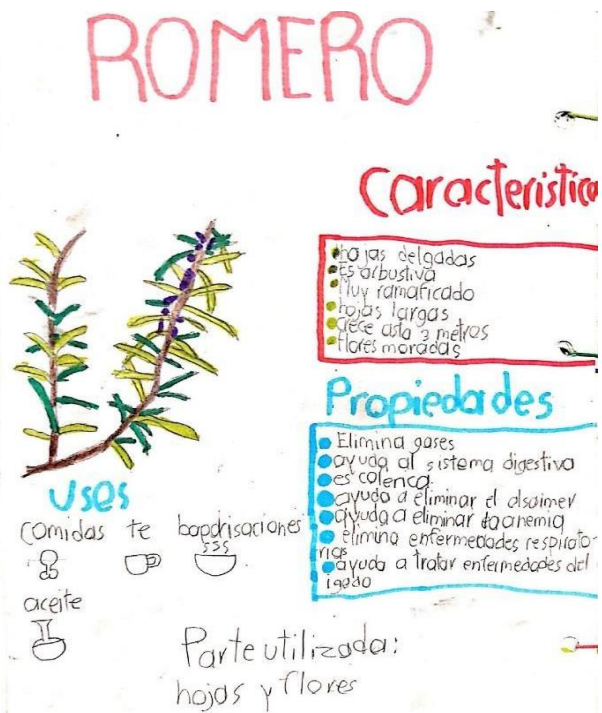 ROMERO
Caracteristica
hojas delgadas
Es arbustiva
Muy ramaficado
hojas largas
crece asta 3 metros
flores moradas
Propiedades
Elimina gases
ayuda al sistema digestiva
es colenca
ayuda a eliminar el alsaimer
ayuda a eliminar la anemia
elimina enfermedades respirato-
rias
ayuda a tratar enfermedades del
igado
Uses
comidas te baporisaciones
aceite
Parte utilizada:
hojas y flores